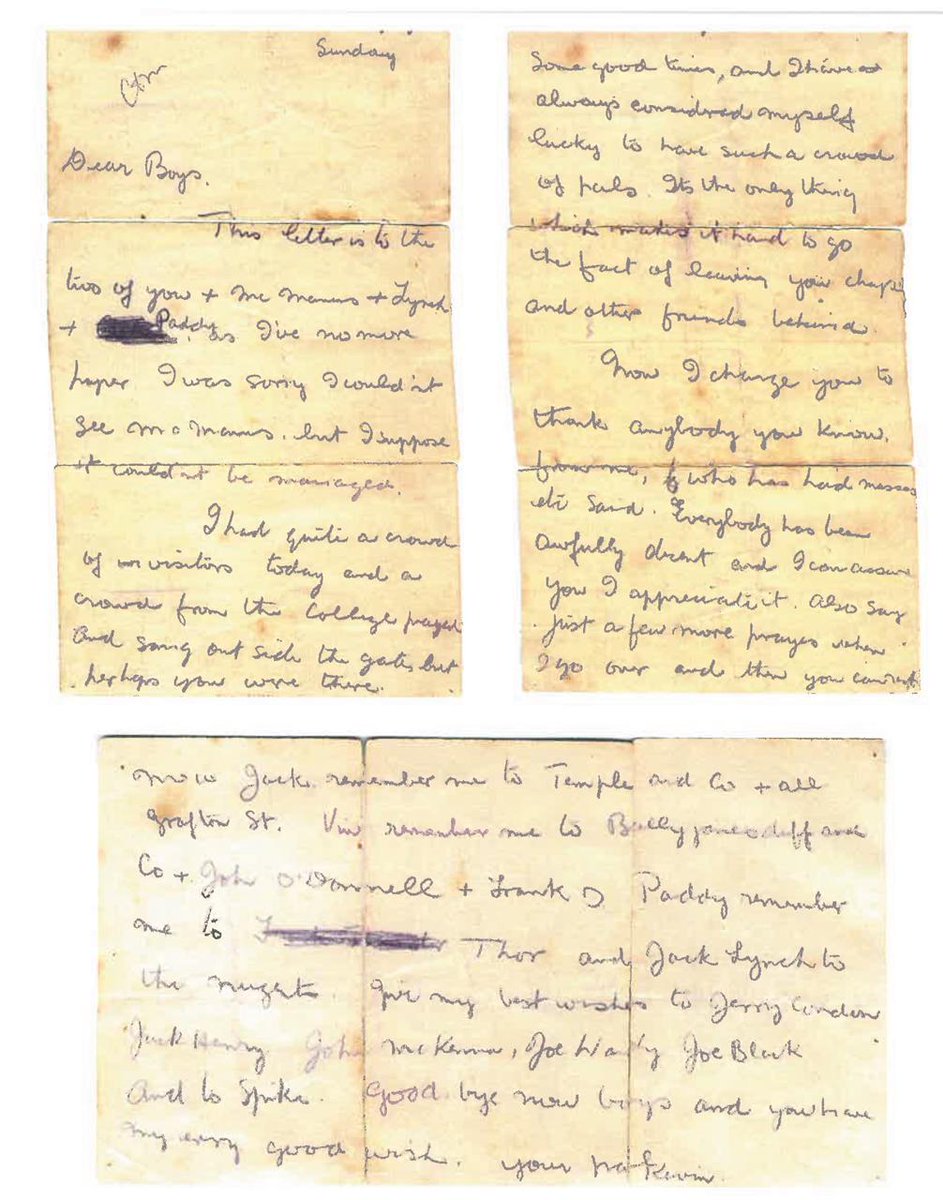 Sunday
Dear Boys.
This letter is to the
two of you + Mc Manus + Lynch
+ Paddy. as I've no more
paper I was sorry I couldn't
see Mc Manus. but I suppose
it couldn't be managed.
I had quite a crowd
of visitors today and a
crowd from the College prayed
and sang out side the gates but
perhaps you were there.
Some good times, and I have
always considred myself
lucky to have such a crowd
of pals. Its the only thing
which makes it hard to go
the fact of leaving you chaps
and other friends behind.
Now I charge you to
thank anybody you know,
from me, who has had masses
etc said. Everybody has been
awfully decent and I can assure
you I appreciate it. Also say
just a few more prayes when
I go over and then you can rest
Now Jack remember me to Temple and Co + all
Grafton St. Vin remember me to and
Co + John O'Donnell + Frank D Paddy remember
me to Thor and Jack Lynch to
the nugents. Give my best wishes to Jerry Condon
Jack Henry John McKenna, Joe Joe Black
And to Spike. Good bye now boys and you have
my every good wish. your Kevin